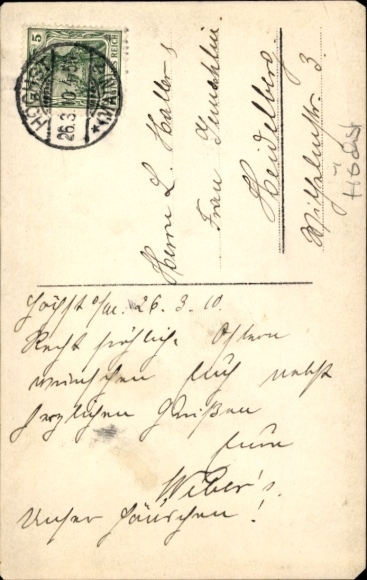 5
REICH
HÖCHST
(MAIN)
26.3.10
Herrn L. Haller &
Frau Gemahlin.
Heidelberg.
Wilhelmstr. 3.
Höchst
Höchst a/M. 26.3.10.
Recht fröhliche Ostern
wünschen Euch nebst
herzlichen Grüßen
Eure
Weber's.
Unser Häuschen!